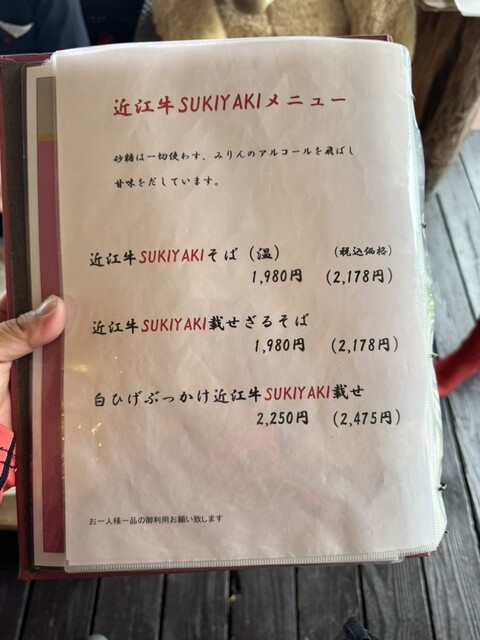 近江牛SUKIYAKIメニュー
砂糖は一切使わず、みりんのアルコールを飛ばし
甘味をだしています。
近江牛SUKIYAKIそば（温） （税込価格）
1,980円 （2,178円）
近江牛SUKIYAKI載せざるそば
1,980円 （2,178円）
白ひげぶっかけ近江牛SUKIYAKI載せ
2,250円 （2,475円）
お一人様一品の御利用お願い致します